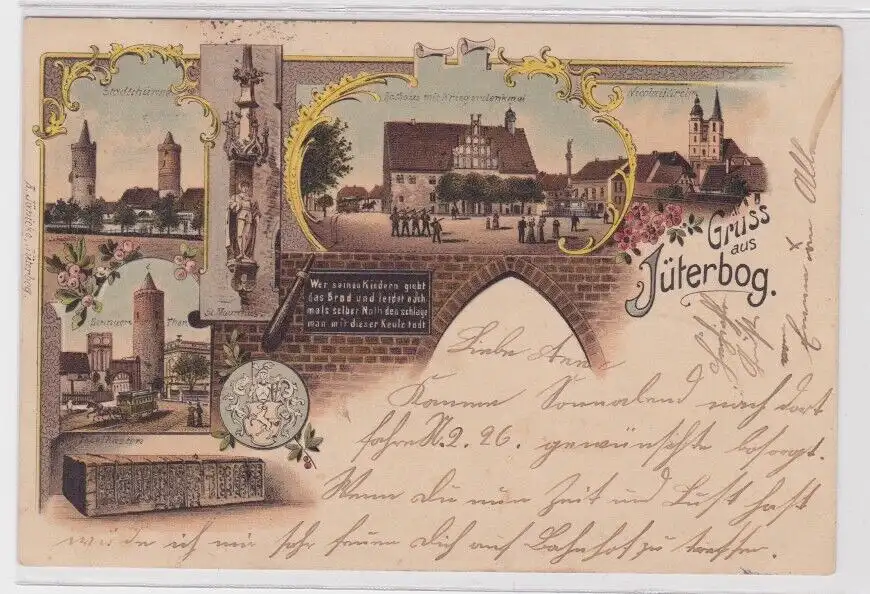 Stadtthürme
Rathaus mit Kriegerdenkmal
Nicolaikirche
Gruss
aus
Jüterbog.
St. Mauritius
Wer seinen Kindern giebt
das Brod und leidet nach-
mals selber Noth den schlage
man mit dieser Keule todt
Thor
Liebe Anna
Komme Sonnabend nach dort
fahre N. 2.26. gewünschte besorgt.
Wenn Du nun Zeit und Lust hast
würde ich mir sehr freuen Dich auf Bahnhof zu treffen.